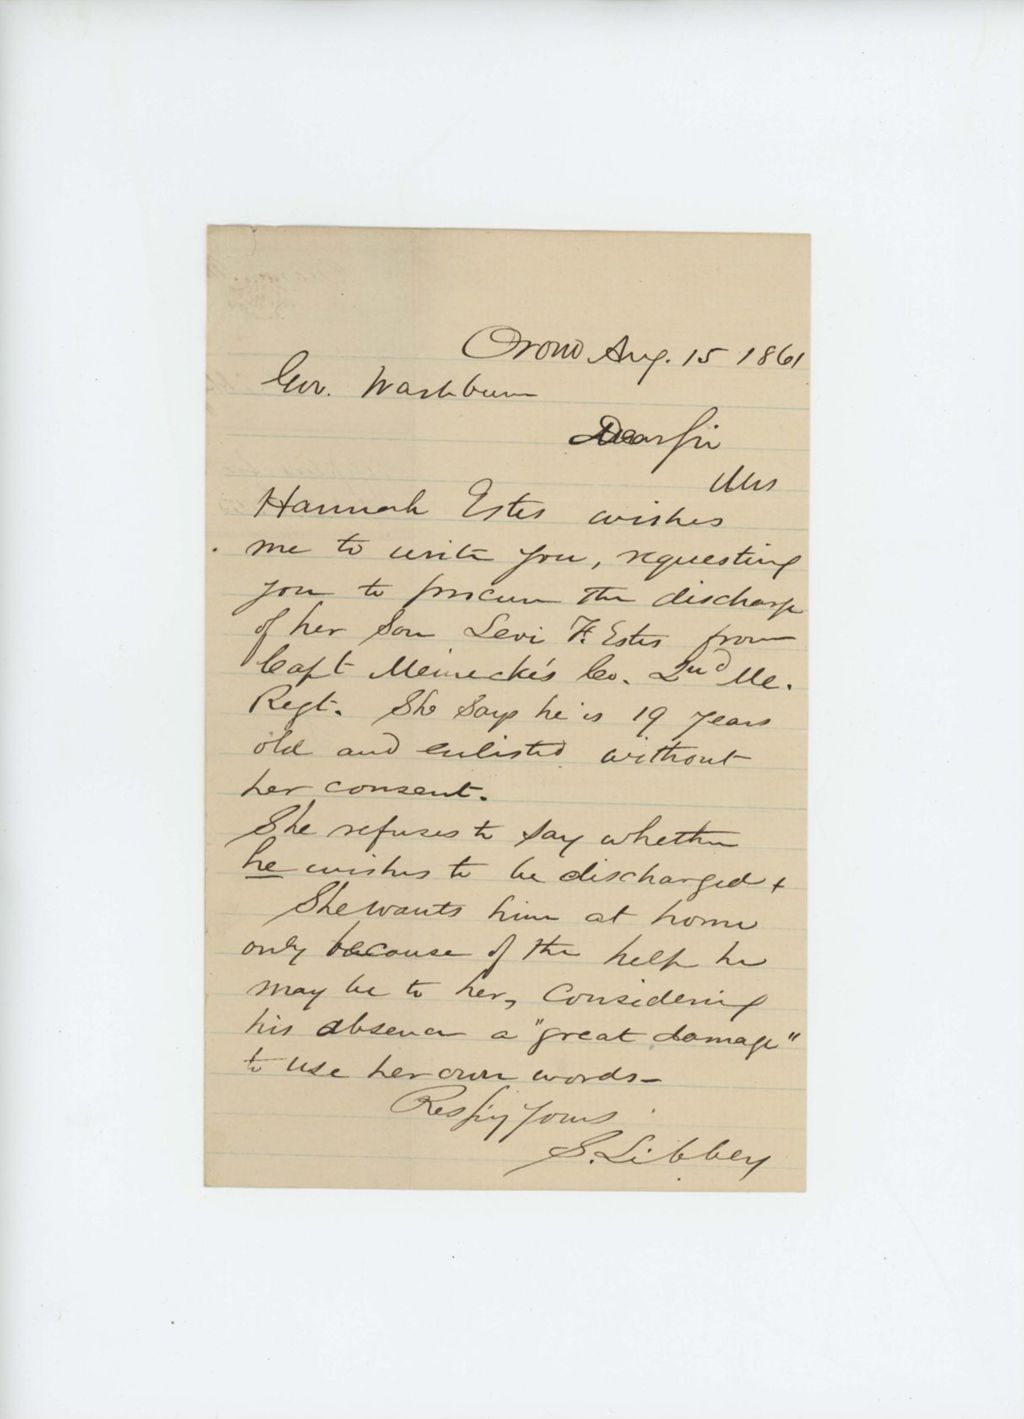 Orono Aug. 15 1861
Gov. Washburn
Dear Sir
Mrs
Hannah Estes wishes
me to write you, requesting
you to procure the discharge
of her Son Levi F. Estes from
Capt Meinecke's Co. 2nd Me.
Regt. She says he is 19 years
old and enlisted without
her consent.
She refuses to say whether
he wishes to be discharged &
She wants him at home
only because of the help he
may be to her, considering
his absence a "great damage"
to use her own words -
Resp'y Yours
S. Libbey